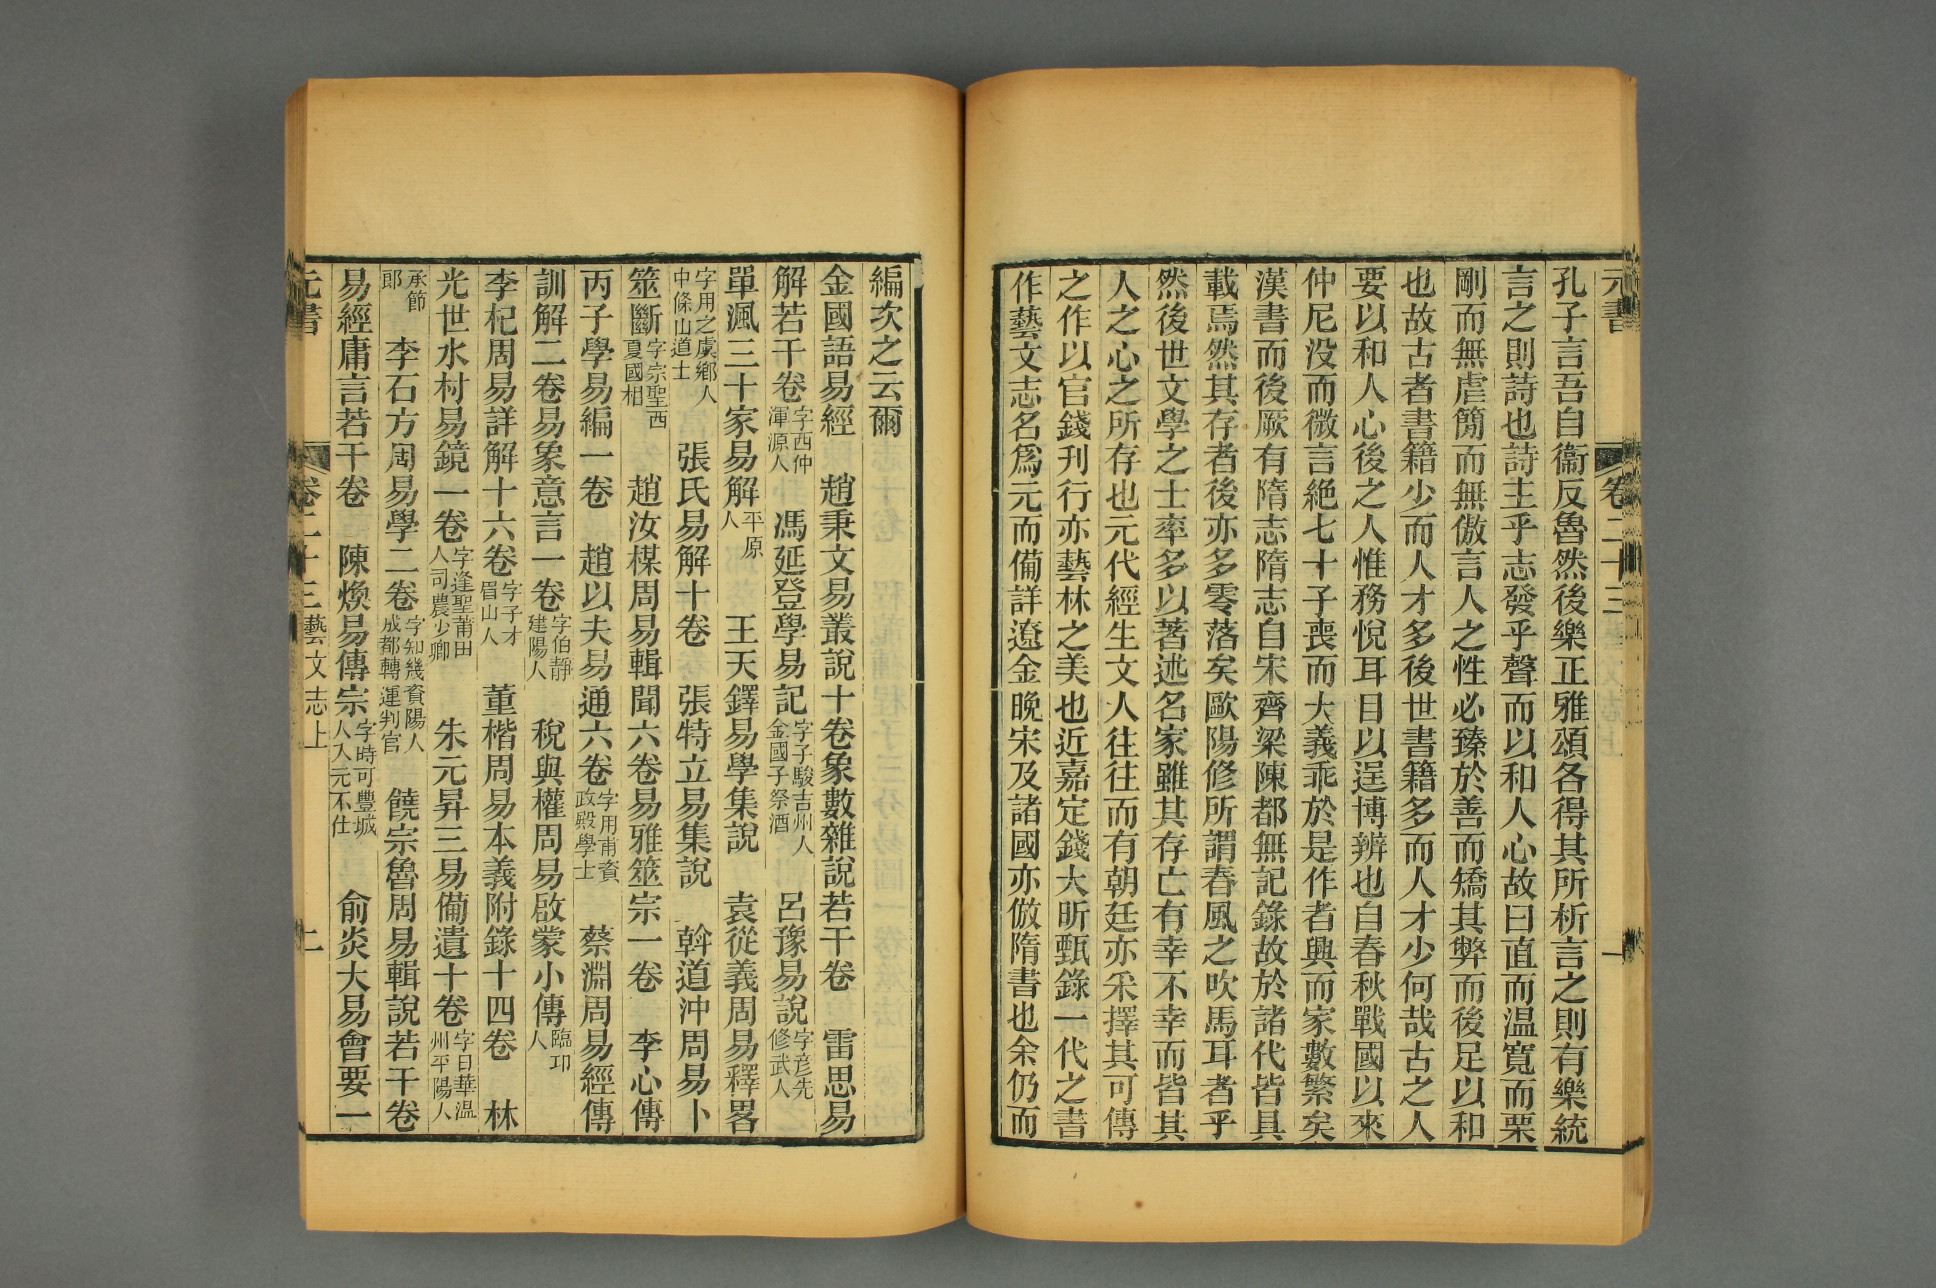 元書
卷二十三
一
孔子言吾自衞反魯然後樂正雅頌各得其所析言之則有樂統
言之則詩也詩主乎志發乎聲而以和人心故曰直而温寬而栗
剛而無虐簡而無傲言人之性必臻於善而矯其弊而後足以和
也故古者書籍少而人才多後世書籍多而人才少何哉古之人
要以和人心後之人惟務悅耳目以逞博辨也自春秋戰國以來
仲尼没而微言絶七十子喪而大義乖於是作者興而家數繁矣
漢書而後厥有隋志隋志自宋齊梁陳都無記錄故於諸代皆具
載焉然其存者後亦多零落矣歐陽修所謂春風之吹馬耳者乎
然後世文學之士率多以著述名家雖其存亡有幸不幸而皆其
人之心之所存也元代經生文人往往而有朝廷亦采擇其可傳
之作以官錢刊行亦藝林之美也近嘉定錢大昕甄錄一代之書
作藝文志名爲元而備詳遼金晚宋及諸國亦倣隋書也余仍而
編次之云爾
金國語易經　趙秉文易叢說十卷象數雜說若干卷　雷思易
解若干卷字西仲渾源人　馮延登學易記字子駿吉州人金國子祭酒　呂豫易說字彦先修武人
單渢三十家易解平原人　王天鐸易學集說　袁從義周易釋畧
字用之虞鄉人中條山道士　張氏易解十卷　張特立易集說　斡道沖周易卜
筮斷字宗聖西夏國相　趙汝楳周易輯聞六卷易雅筮宗一卷　李心傳
丙子學易編一卷　趙以夫易通六卷字用甫資政殿學士　蔡淵周易經傳
訓解二卷易象意言一卷字伯靜建陽人　稅與權周易啟蒙小傳臨邛人
李杞周易詳解十六卷字子才眉山人　董楷周易本義附錄十四卷　林
光世水村易鏡一卷字逢聖莆田人司農少卿　朱元昇三易備遺十卷字日華温州平陽人
承節郎　李石方周易學二卷字知幾資陽人成都轉運判官　饒宗魯周易輯說若干卷
易經庸言若干卷　陳煥易傳宗字時可豐城人入元不仕　俞炎大易會要一
元書
卷二十三
藝文志上
二